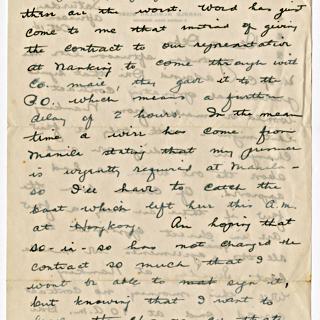 them all the worst. Word has just
come to me that instead of giving
the contract to our representative
at Nanking to come through with
Co. mail, they gave it to the
P.O. which means a further
delay of 2 hours. In the mean
time a wire has come from
Manila stating that my presence
is urgently required at Manila -
so I'll have to catch the
boat which left here this A.M.
at Hongkong. Am hoping that
so-in-so has not changed the
contract so much that I
wont be able to sign it,
but knowing that I want to